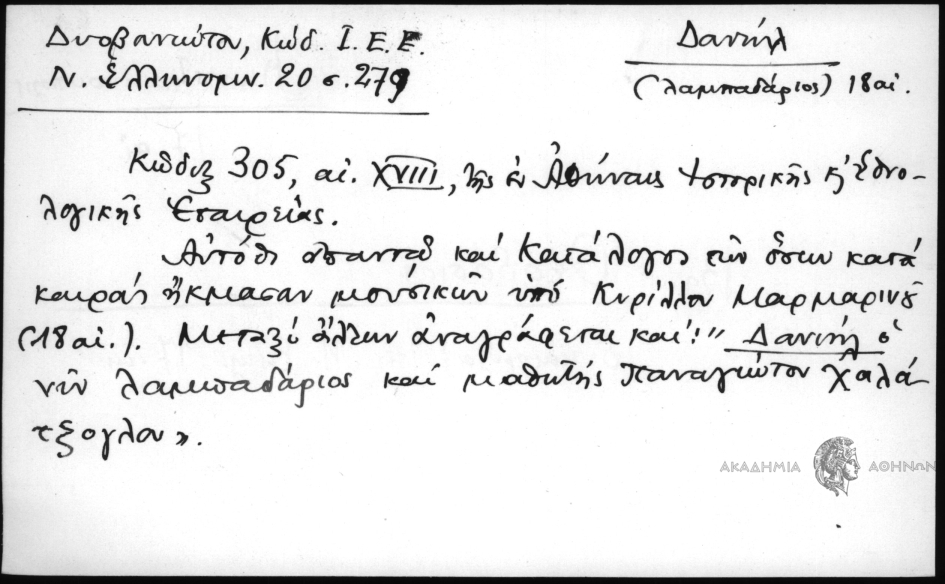 Δυοβουνιώτου, Κώδ. Ι.Ε.Ε.
Δανιήλ
Ν. Ἑλληνομν. 20 σ. 279
(λαμπαδάριος) 18 αἰ.
Κῶδιξ 305, αἰ. XVIII, τῆς ἐν Ἀθήναις Ἱστορικῆς κ Ἐθνο-
λογικῆς Ἑταιρείας.
Αὐτόθι ἀπαντᾷ καὶ Κατάλογος τῶν ὅσων κατὰ
καιρὰς ἤκμασαν μουσικῶν ὑπὸ Κυρίλλου Μαρμαρινοῦ
(18 αἰ.). Μεταξὺ ἄλλων ἀναγράφεται καί: "Δανιὴλ ὁ
νῦν λαμπαδάριος καὶ μαθητὴς Παναγιώτου Χαλά-
τζογλου».
ΑΚΑΔΗΜΙΑ ΑΘΗΝΩΝ